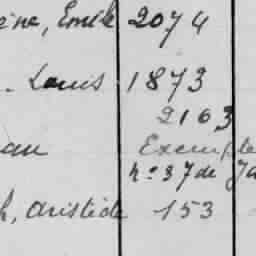 ine, Emile 2074
. Louis 1873
2163
au Exemple
no 37 de Ja
h, Aristide 153